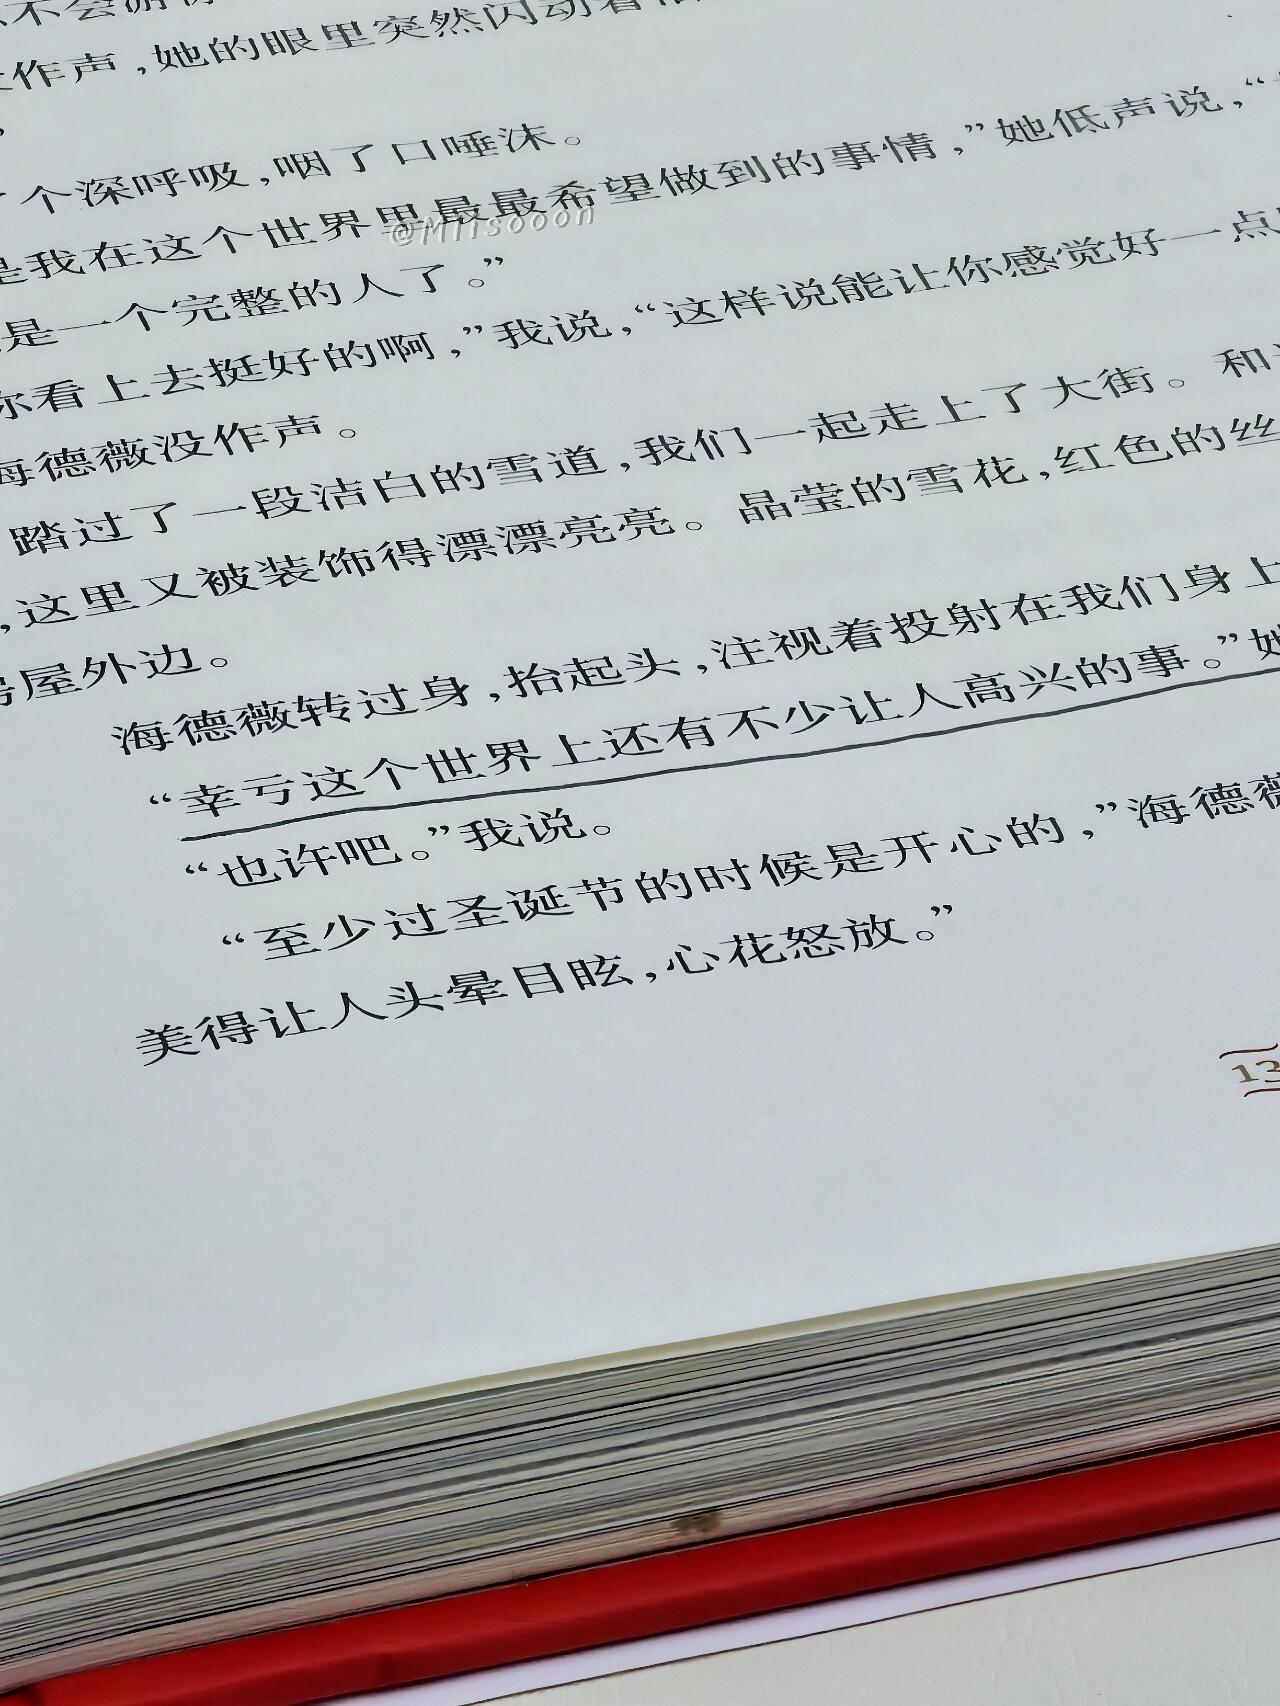 作声,她的眼里突然闪动着
个深呼吸,咽了口唾沫。
是我在这个世界里最最希望做到的事情,”她低声说,“
@Mrisooon
是一个完整的人了。”
你看上去挺好的啊,”我说,“这样说能让你感觉好一点
海德薇没作声。
踏过了一段洁白的雪道,我们一起走上了大街。和
,这里又被装饰得漂漂亮亮。晶莹的雪花,红色的丝
屋外边。
海德薇转过身,抬起头,注视着投射在我们身上
“幸亏这个世界上还有不少让人高兴的事。”她
“也许吧。”我说。
“至少过圣诞节的时候是开心的,”海德薇
美得让人头晕目眩,心花怒放。”
13